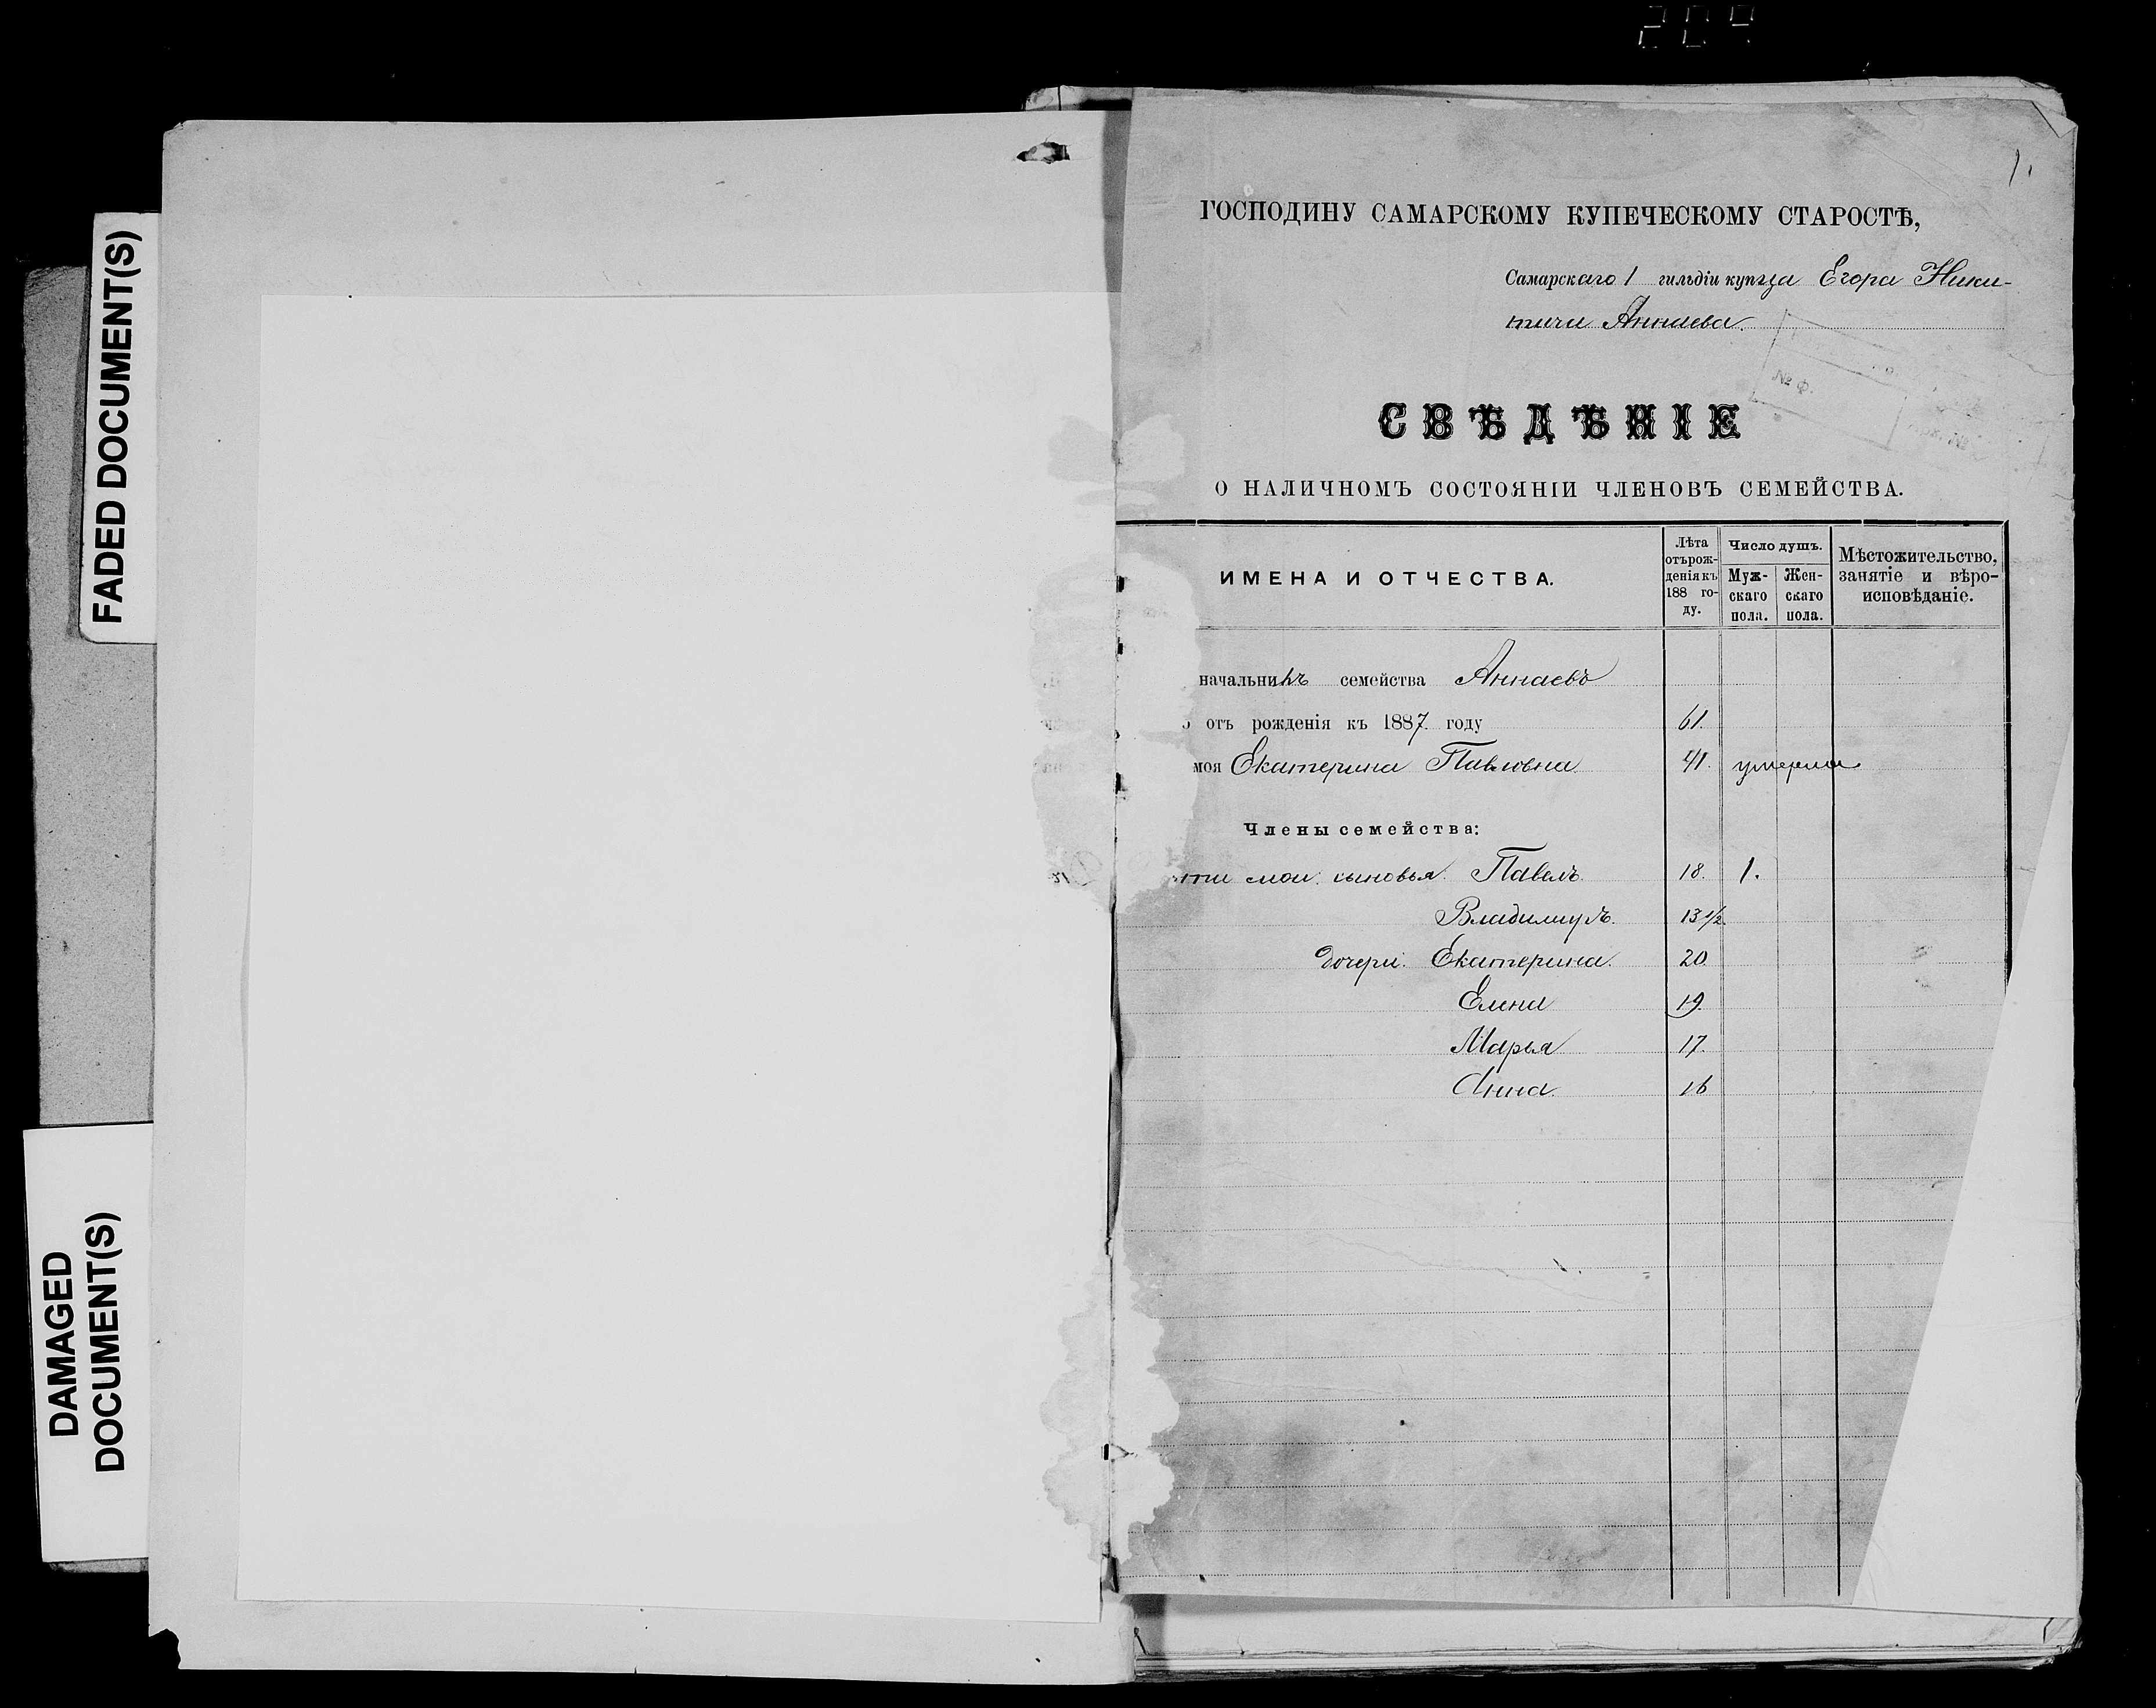 FADED DOCUMENT(S)
DAMAGED
DOCUMENT(S)
204
1.
ГОСПОДИНУ САМАРСКОМУ КУПЕЧЕСКОМУ СТАРОСТѢ,
Самарскаго 1 гильдіи купца Егора Ники-
тича Аннаева.
№ Ф.
СВѢДѢНІЕ
О НАЛИЧНОМЪ СОСТОЯНІИ ЧЛЕНОВЪ СЕМЕЙСТВА.
ИМЕНА И ОТЧЕСТВА.
Лѣта
отъ рож-
денія къ
188 го-
ду.
Число душъ.
Муж-
скаго
пола.
Жен-
скаго
пола.
Мѣстожительство,
занятіе и вѣро-
исповѣданіе.
начальникъ семейства Аннаевъ
отъ рожденія къ 1887 году 61.
моя Екатерина Павловна. 41. умерла
Члены семейства:
мои: сыновья. Павелъ. 18. 1.
Владимиръ. 13 1/2
дочери: Екатерина. 20.
Елена 19.
Марья 17.
Анна. 16